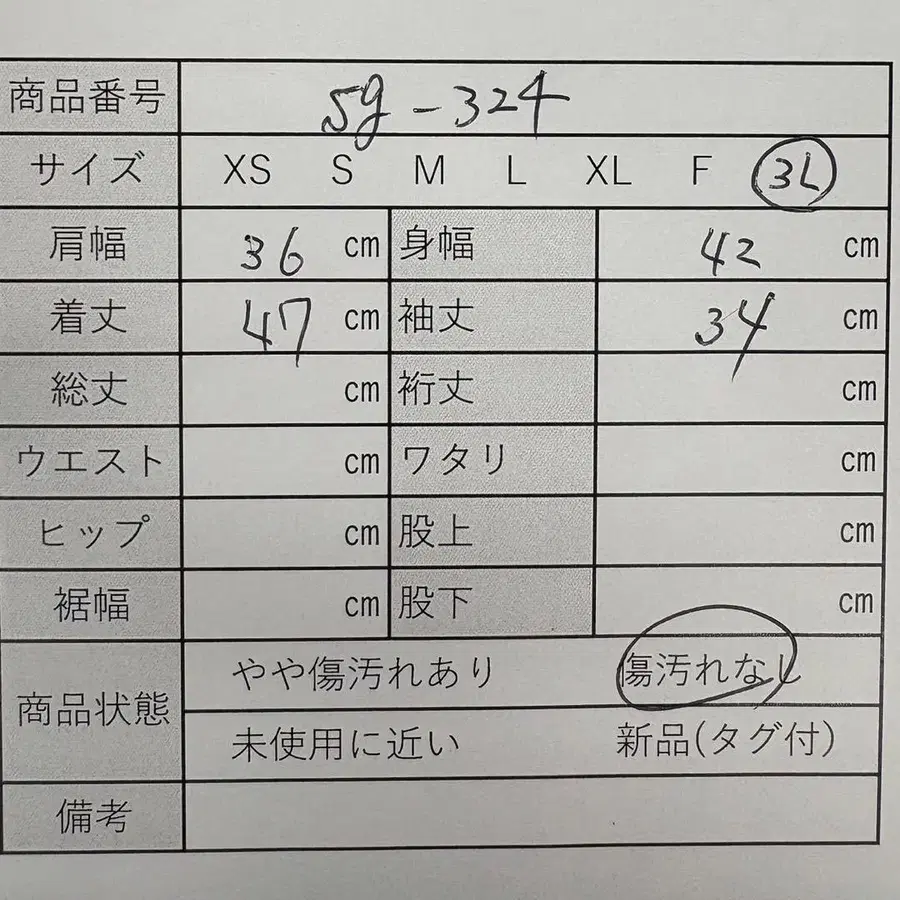 商品番号 sg-324
サイズ XS S M L XL F 3L
肩幅 36 cm 身幅 42 cm
着丈 47 cm 袖丈 34 cm
総丈 cm 裄丈 cm
ウエスト cm ワタリ cm
ヒップ cm 股上 cm
裾幅 cm 股下 cm
商品状態 やや傷汚れあり 傷汚れなし
未使用に近い 新品(タグ付)
備考